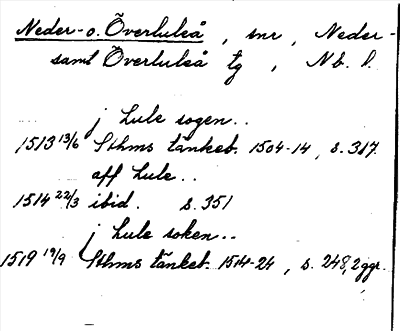 Neder- o. Överluleå, snr, Neder-
samt Överluleå tg, Nb. l.
j Lule sogen..
1513 13/6 Sthms tänkeb. 1504-14, s. 317.
aff Lule..
1514 22/3 ibid. s. 351
j Lule soken..
1519 19/9 Sthms tänkeb. 1514-24, s. 248, 2 ggr.